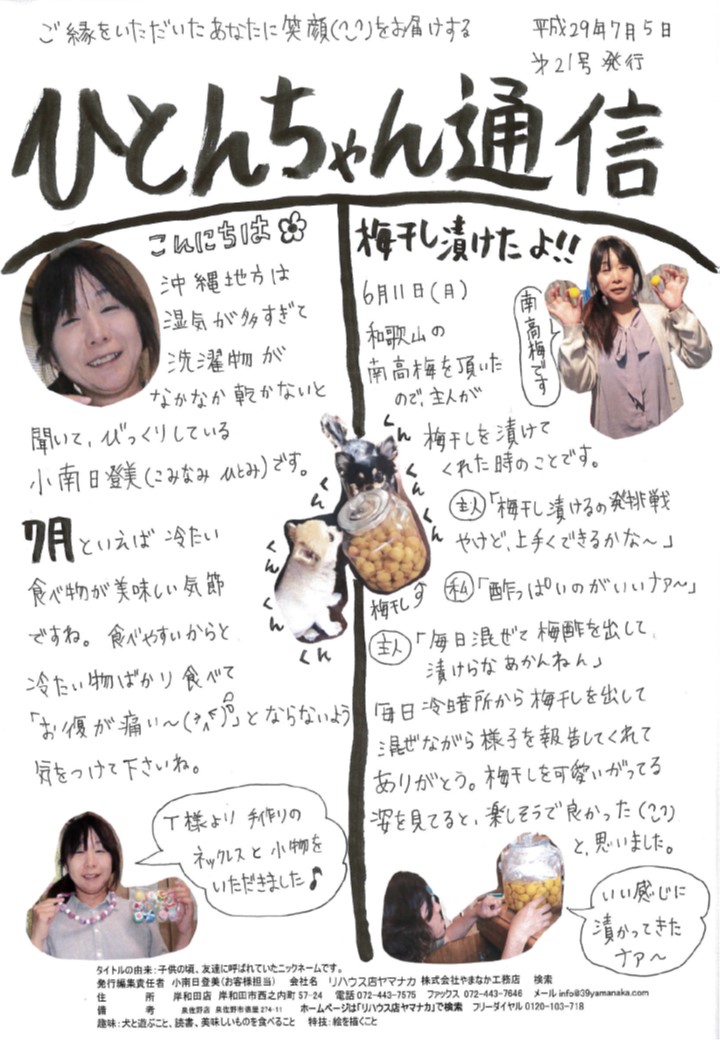 ご縁をいただいたあなたに笑顔(^_^)をお届けする
平成29年7月5日
第21号発行
ひとんちゃん通信
こんにちは
沖縄地方は
湿気が多すぎて
洗濯物が
なかなか乾かないと
聞いて、びっくりしている
小南日登美(こみなみ ひとみ)です。
7月といえば冷たい
食べ物が美味しい気節
ですね。食べやすいからと
冷たい物ばかり食べて
「お腹が痛い〜」とならないよう
気をつけて下さいね。
T様より手作りの
ネックレスと小物を
いただきました♪
梅干し漬けたよ!!
6月11日(月)
和歌山の
南高梅を頂いた
ので、主人が
梅干しを漬けて
くれた時のことです。
南高梅です
主人「梅干し漬けるの発挑戦
やけど、上手くできるかな〜」
私「酢っぱいのがいいナァ〜」
主人「毎日混ぜて梅酢を出して、
漬けらな あかんねん」
「毎日冷暗所から梅干しを出して
混ぜながら様子を報告してくれて
ありがとう。梅干しを可愛いがってる
姿を見てると、楽しそうで良かった(^_^)
と、思いました。
くんくんくん
くんくん
くんくんくんくん
梅干し
いい感じに
漬かってきた
ナァ〜
タイトルの由来:子供の頃、友達に呼ばれていたニックネームです。
発行編集責任者 小南日登美(お客様担当) 会社名 リハウス店ヤマナカ 株式会社やまなか工務店 検索
住 所 岸和田店 岸和田市西之内町57-24 電話072-443-7575 ファックス 072-443-7646 メール info@39yamanaka.com
備 考 泉佐野店 泉佐野市俵屋274-11 ホームページは「リハウス店ヤマナカ」で検索 フリーダイヤル 0120-103-718
趣味:犬と遊ぶこと、読書、美味しいものを食べること 特技:絵を描くこと